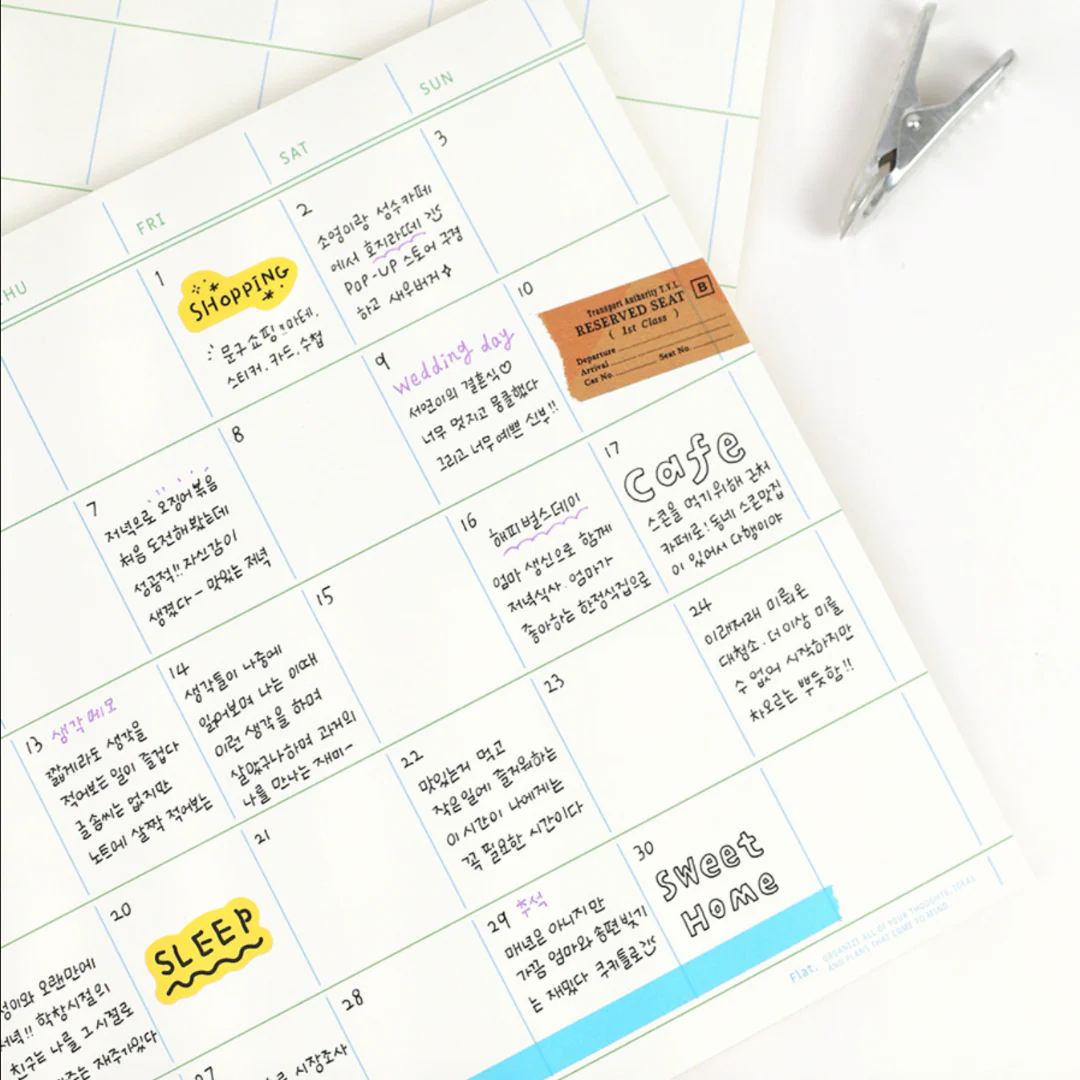 HU
FRI
SAT
SUN
1
SHOPPING
문구쇼핑 : 마테.
스티커. 카드. 수첩
2
소영이랑 성수카페
에서 호지라떼
POP-UP 스토어 구경
하고 새우버거
3
7
저녁으로 오징어볶음
처음 도전해봤는데
성공적!! 자신감이
생겼다 - 맛있는 저녁
8
9
wedding day
서연이의 결혼식♡
너무 멋지고 뭉클했다
그리고 너무 예쁜 신부!!
10
Transport Authority T.V.L.
B
RESERVED SEAT
( 1st Class )
Departure
Arrival
Car No. Seat No.
13 생각메모
짧게라도 생각을
적어보는 일이 즐겁다
글솜씨는 없지만
노트에 살짝 적어보는
14
생각들이 나중에
읽어보며 나는 이때
이런 생각을 하며
살았구나하며 과거의
나를 만나는 재미-
15
16
해피벌스데이
엄마 생신으로 함께
저녁식사. 엄마가
좋아하는 한정식집으로
17
cafe
스콘을 먹기위해 근처
카페로! 동네 스콘맛집
이 있어서 다행이야
20
SLEEP
21
22
맛있는거 먹고
작은일에 즐거워하는
이 시간이 나에게는
꼭 필요한 시간이다
23
24
이래저래 미뤄온
대청소. 더이상 미룰
수 없어 시작하지만
차오르는 뿌듯함!!
성이와 오랜만에
저녁!! 학창시절의
친구는 나를 그시절로
주는 재주가있다
27
로 시장조사
28
29 추석
매년은 아니지만
가끔 엄마와 송편빚기
는 재밌다 쿠키틀로
30
Sweet
Home
Flat.
ORGANIZE ALL OF YOUR THOUGHTS, IDEAS
AND PLANS THAT COME TO MIND